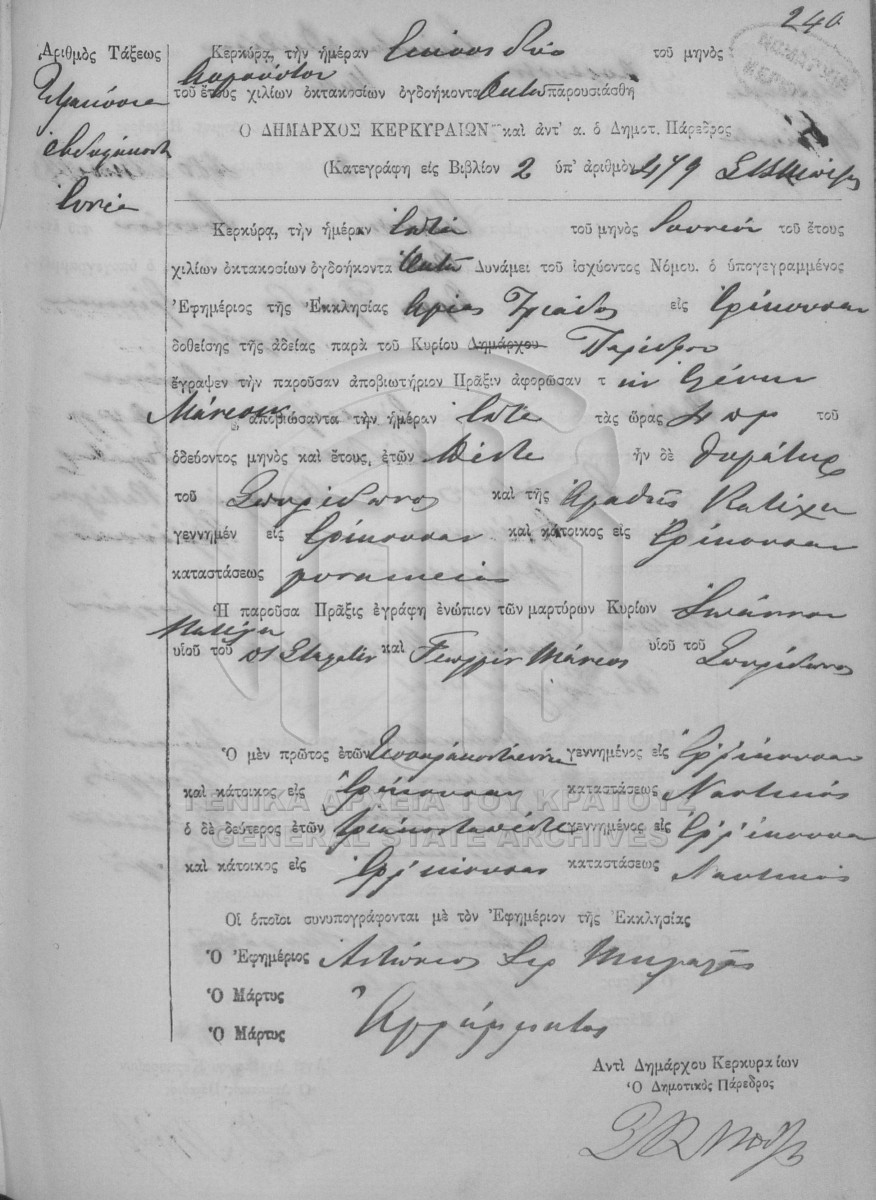 240
ΝΟΜΑΡΧΙΑ
Ἀριθμὸς Τάξεως
Τετρακόσια
ἑβδομήκοντα
ἐννέα
Κερκύρα, τὴν ἡμέραν εἴκοσι δύο τοῦ μηνὸς
Αὐγούστου
τοῦ ἔτους χιλίων ὀκτακοσίων ὀγδοήκοντα ὀκτὼ παρουσιάσθη
Ο ΔΗΜΑΡΧΟΣ ΚΕΡΚΥΡΑΙΩΝ καὶ ἀντ' α. ὁ Δημοτ. Πάρεδρος
(Κατεγράφη εἰς Βιβλίον 2 ὑπ' ἀριθμὸν 479
Κερκύρα, τὴν ἡμέραν ἑπτὰ τοῦ μηνὸς Ἰουνίου τοῦ ἔτους
χιλίων ὀκτακοσίων ὀγδοήκοντα ὀκτὼ Δυνάμει τοῦ ἰσχύοντος Νόμου. ὁ ὑπογεγραμμένος
Ἐφημέριος τῆς Ἐκκλησίας Ἁγίας Τριάδος εἰς Ἐρίκουσαν
δοθείσης τῆς ἀδείας παρὰ τοῦ Κυρίου Δημάρχου Παρέδρου
ἔγραψεν τὴν παροῦσαν ἀποβιωτήριον Πρᾶξιν ἀφορῶσαν τ ὴν Ἑλένην
Μάνεση, ἀποβιώσαντα τὴν ἡμέραν ἑπτὰ τὰς ὥρας π μ τοῦ
ὁδεύοντος μηνὸς καὶ ἔτους, ἐτῶν πέντε ἦν δὲ θυγάτηρ
τοῦ Σπυρίδωνος καὶ τῆς Ἀγαθῆς Κατέχη
γεννημέν εἰς Ἐρίκουσαν καὶ κάτοικος εἰς Ἐρίκουσαν
καταστάσεως
Ἡ παροῦσα Πρᾶξις ἐγράφη ἐνώπιον τῶν μαρτύρων Κυρίων Ἰωάννου
Κατέχη
υἱοῦ τοῦ καὶ Γεωργίου Μάνεση υἱοῦ τοῦ Σπυρίδωνος
Ὁ μὲν πρῶτος ἐτῶν γεννημένος εἰς Ἐρίκουσαν
καὶ κάτοικος εἰς Ἐρίκουσαν καταστάσεως Ναυτικός
ὁ δὲ δεύτερος ἐτῶν τριακονταπέντε γεννημένος εἰς Ἐρίκουσα
καὶ κάτοικος εἰς Ἐρίκουσας καταστάσεως Ναυτικός
ΓΕΝΙΚΑ ΑΡΧΕΙΑ ΤΟΥ ΚΡΑΤΟΥΣ
GENERAL STATE ARCHIVES
Οἱ ὁποῖοι συνυπογράφονται μὲ τὸν Ἐφημέριον τῆς Ἐκκλησίας
Ὁ Ἐφημέριος Ἀντώνιος
Ὁ Μάρτυς
Ὁ Μάρτυς Ἀγράμματος
Αντὶ Δημάρχου Κερκυραίων
Ὁ Δημοτικὸς Πάρεδρος